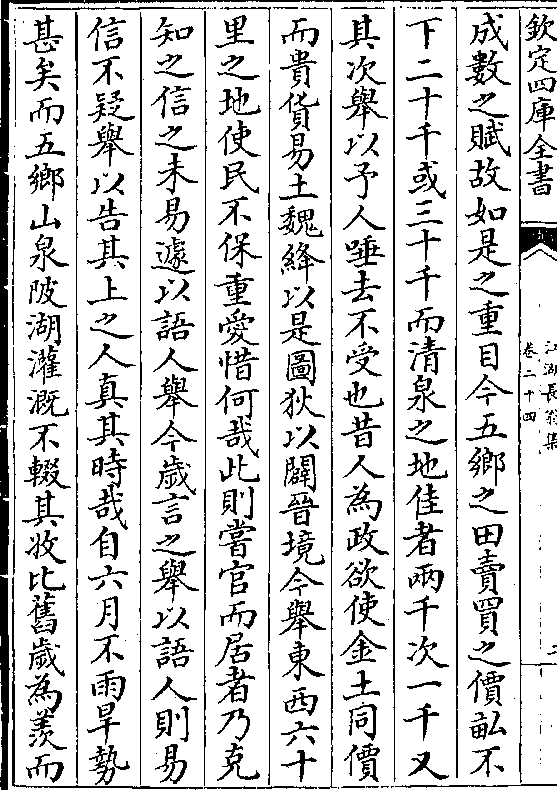 欽定四庫全書
江湖長翁集
卷二十四
成數之賦故如是之重目今五鄉之田賣買之價畝不
下二十千或三十千而清泉之地佳者兩千次一千又
其次舉以予人唾去不受也昔人為政欲使金土同價
而貴貨易土魏絳以是圖狄以闢晉境今舉東西六十
里之地使民不保重愛惜何哉此則嘗官而居者乃克
知之信之未易遽以語人舉今歲言之舉以語人則易
信不疑舉以告其上之人真其時哉自六月不雨旱勢
甚矣而五鄉山泉陂湖灌溉不輟其收比舊歲為羨而